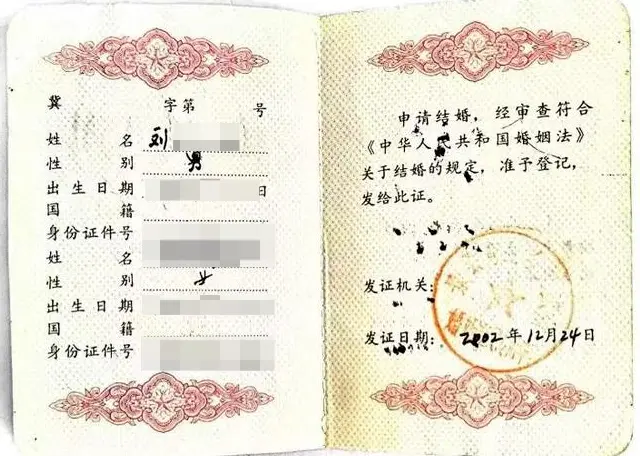 冀 字第 号
姓名 刘
性别 男
出生日期 日
国籍
身份证件号
姓名
性别 女
出生日期
国籍
身份证件号
申请结婚，经审查符合
《中华人民共和国婚姻法》
关于结婚的规定，准予登记，
发给此证。
发证机关：
发证日期：2002年12月24日